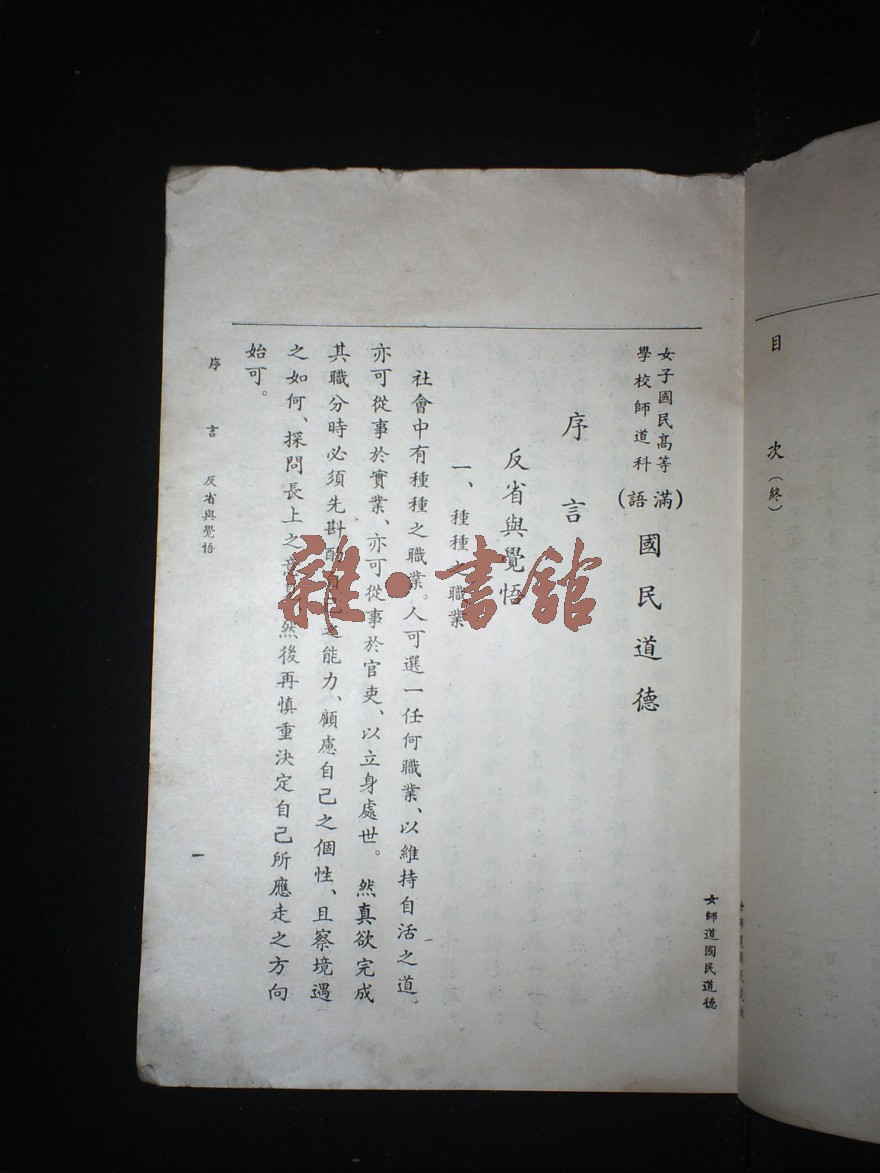 目次(終)
女子國民高等
學校師道科
(滿語)
國民道德
序言
反省與覺悟
一、種種之職業
社會中有種種之職業。人可選一任何職業、以維持自活之道、
亦可從事於實業、亦可從事於官吏、以立身處世。然真欲完成
其職分時必須先斟酌自己之能力、顧慮自己之個性、且察境遇
之如何、探問長上之意 然後再慎重決定自己所應走之方向
始可。
序言 反省與覺悟
一
女師道國民道德
雜·書館